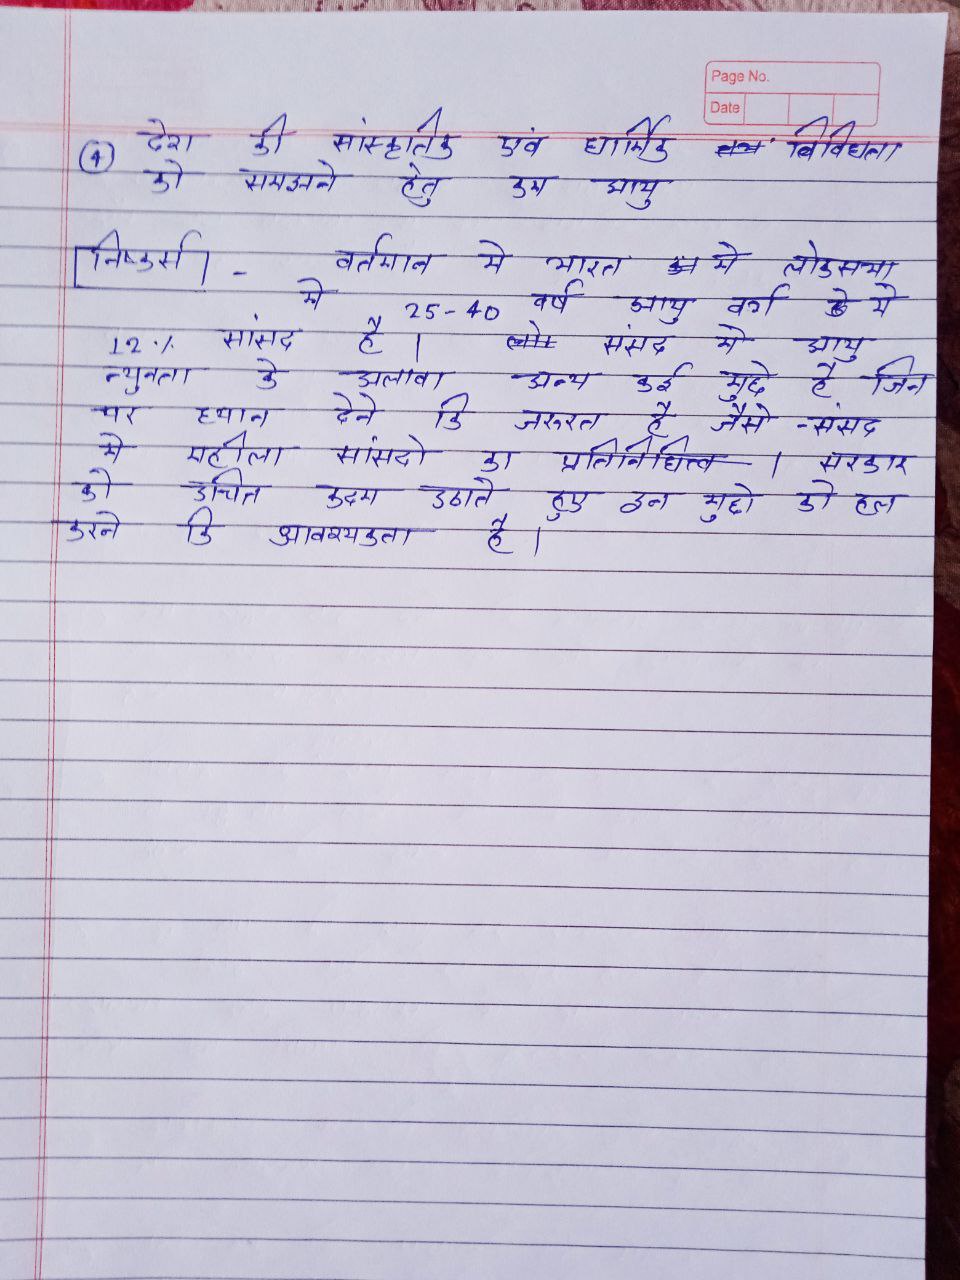 Page No.
Date
④ देश की सांस्कृतिक एवं धार्मिक विविधता
को समझने हेतु कम आयु
निष्कर्स - वर्तमान मे भारत मे लोकसभा
मे 25-40 वर्ष आयु वर्ग के मे
12% सांसद है । संसद मे आयु
न्युनता के अलावा अन्य कई मुद्दे है जिन
पर ध्यान देने कि जरूरत है जैसे - संसद
मे महीला सांसदो का प्रतिनिधित्व । सरकार
को उचित कदम उठाते हुए इन मुद्दो को हल
करने कि आवश्यकता है ।